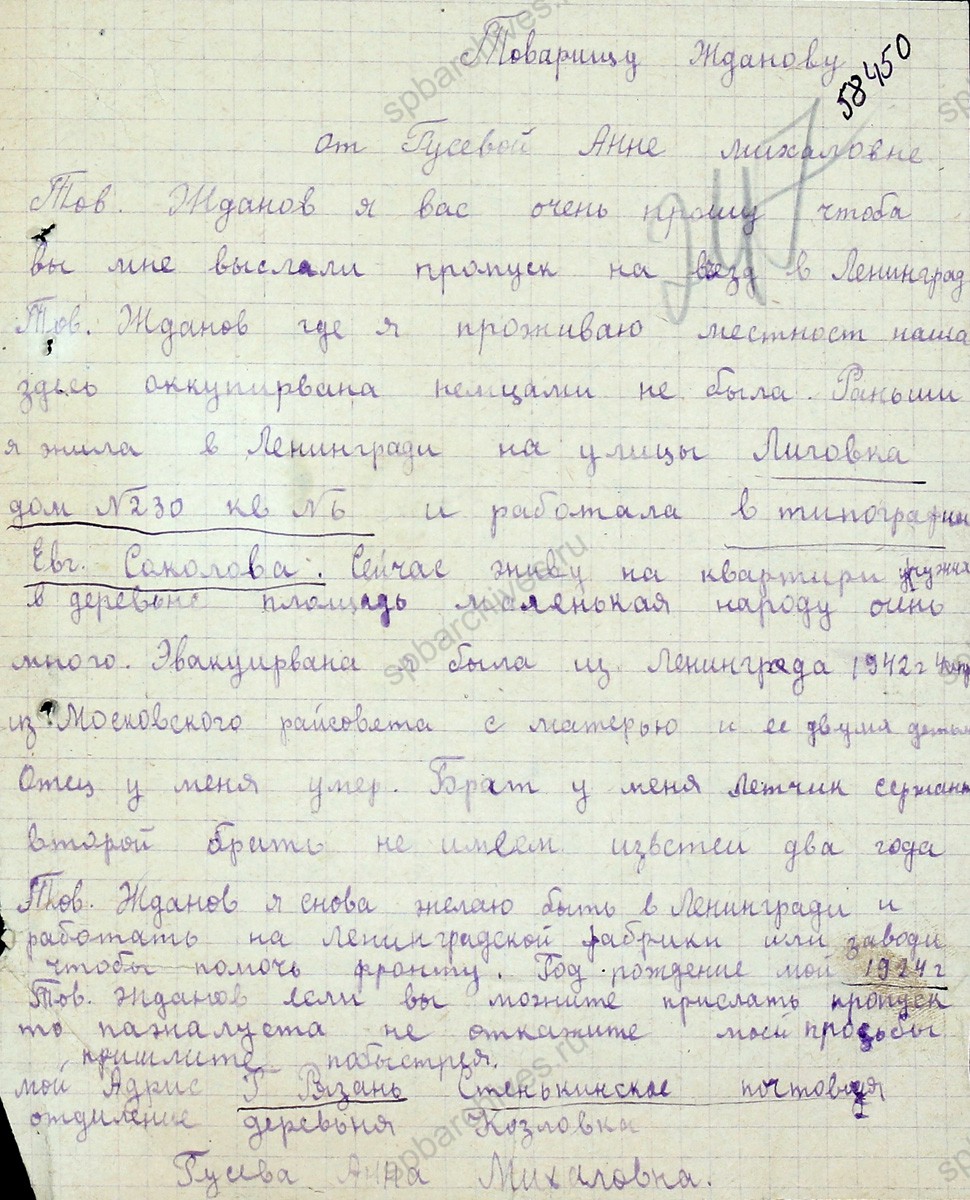 Товарищу Жданову
58450
от Гусевой Анне Михаловне
Тов. Жданов я вас очень прошу чтоба
вы мне выслали пропуск на везд в Ленинград
Тов. Жданов где я проживаю местност наша
здесь оккупирвана немцами не была. Раньши
я жила в Ленингради на улицы Лиговка
дом №230 кв №6 и работала в типографии
Евг. Соколова. Сейчас живу на квартири
в деревьне площядь маленькая народу очень
много. Эвакуирвана я была из Ленинграда 1942 г
из Московского райсовета с матерью и ее двумя детьми
Отец у меня умер. Брат у меня летчик сержант
второй брать не имеем извстеи два года
Тов. Жданов я снова желаю быть в Ленингради и
работать на Ленинградской фабрики или заводи
чтобы помочь фронту. Год рождение мой 1924 г
Тов. Жданов если вы можите прислать пропуск
то пажалуста не откажите моей просьбы
пришлите побыстрея.
мой Адрис Г Рязань Стенькинское почтовуя
отдиление деревьня Козловка
Гусева Анна Михаловна.
spbarchives.ru
spbarchives.ru
spbarchives.ru